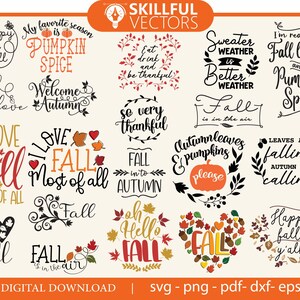 SKILLFUL
VECTORS
My favorite season
is
PUMPKIN
SPICE
Welcome
Autumn
eat
drink and
and be
thankful
Sweater
WEATHER
IS
Better
WEATHER
Fall
is in the air
so very
thankful
I LOVE
FALL
Most of all
FALL
into
AUTUMN
Autumn leaves
& pumpkins
please
LEAVES
falling
AUTUMN
calling
Fall
oh
Hello
FALL
FALL
FALL
is in the air
DIGITAL DOWNLOAD | svg - png - pdf - dxf - eps